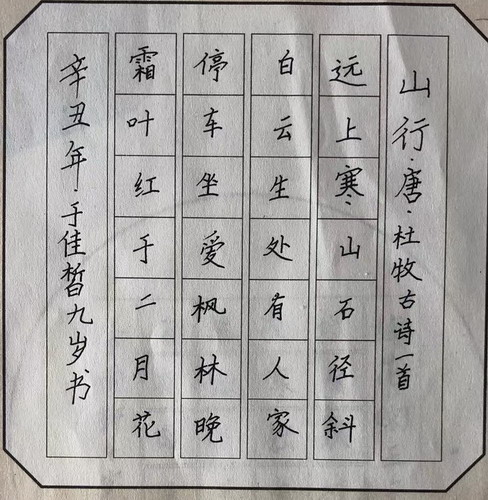 山行·唐·杜牧古诗一首
远上寒山石径斜
白云生处有人家
停车坐爱枫林晚
霜叶红于二月花
辛丑年·于佳皙九岁书